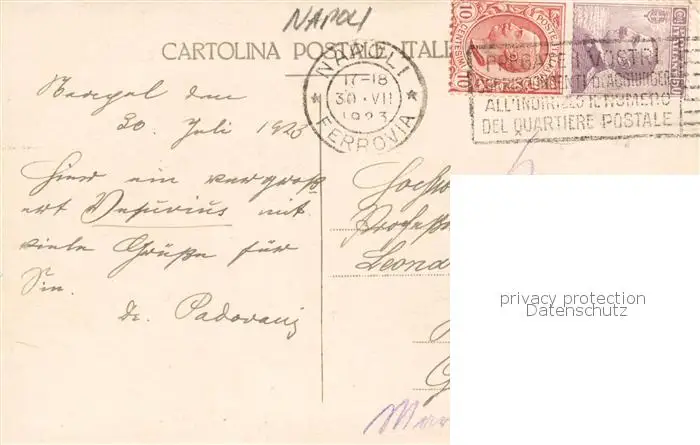 NAPOLI
CARTOLINA POSTALE ITALI
NAPOLI
17-18
30·VII
1923
FERROVIA
10 CENTESIMI 10
POSTE ITALI
CENT. 50
PREGATE I VOSTRI
CORRISPONDENTI D'AGGIUNGERE
ALL'INDIRIZZO IL NUMERO
DEL QUARTIERE POSTALE
Neapel den
30. Juli 1923
Hier ein vergröß
ert Vesuvius mit
viele Grüße für
Sie.
Dr. Padovani
Hochw
Professo
Leona
privacy protection
Datenschutz